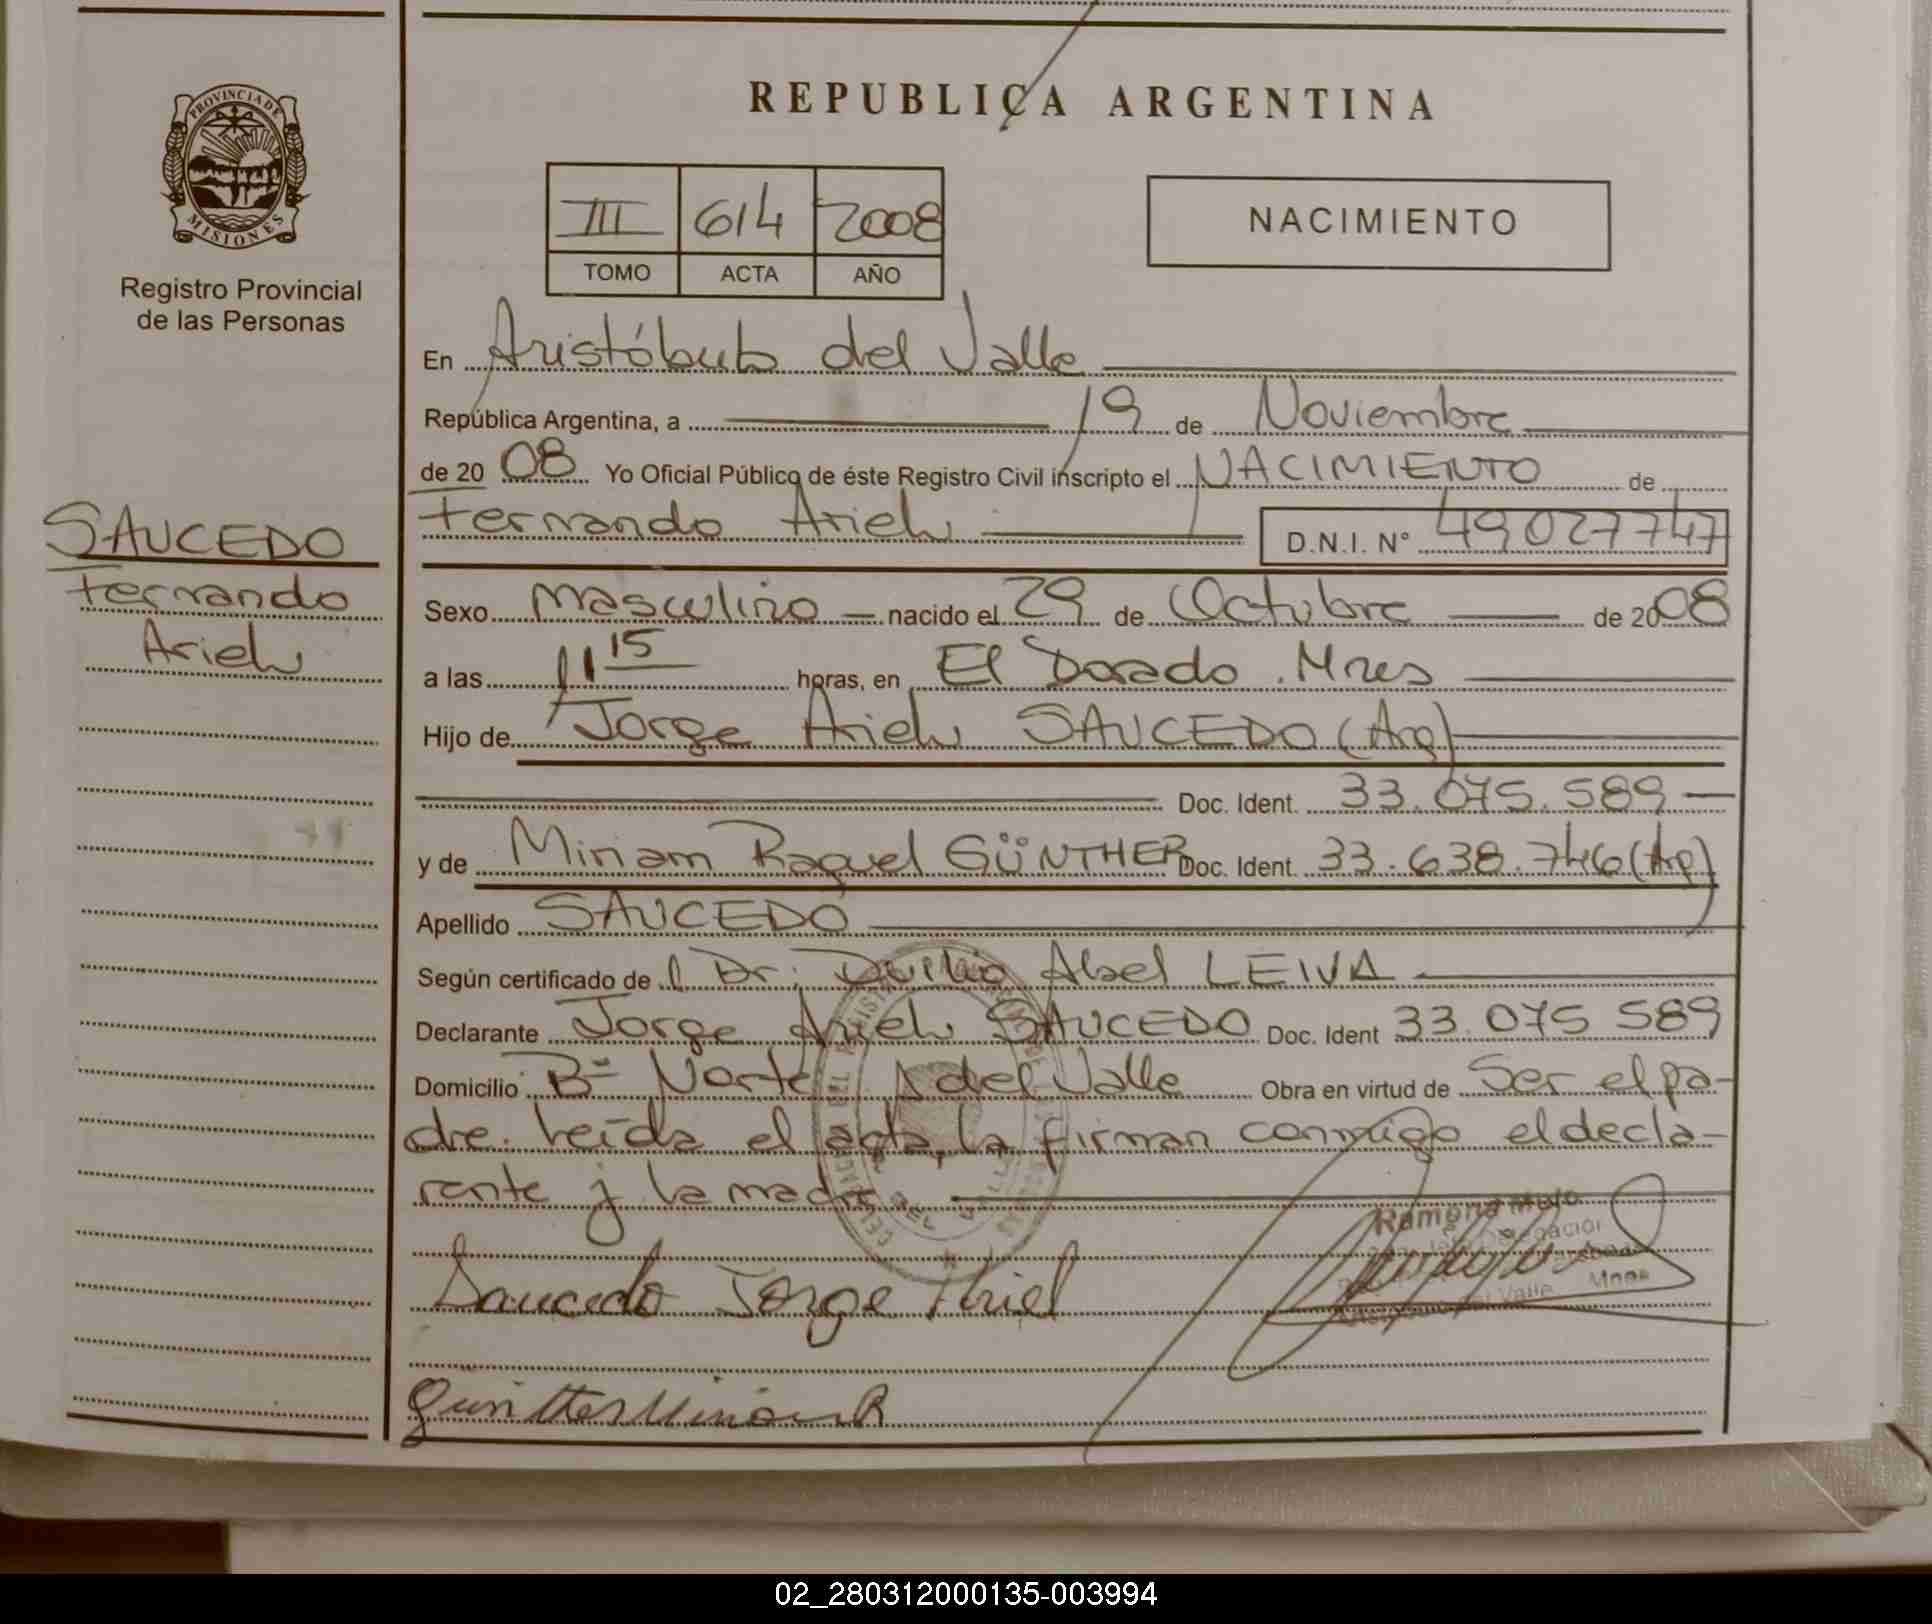 REPUBLICA ARGENTINA
PROVINCIA DE
MISIONES
Registro Provincial
de las Personas
III 614 2008
TOMO ACTA AÑO
NACIMIENTO
En Aristóbulo del Valle
República Argentina, a 19 de Noviembre
de 20 08 Yo Oficial Público de éste Registro Civil inscripto el NACIMIENTO de
Fernando Ariel D.N.I. N° 49027747
SAUCEDO
Fernando
Ariel
Sexo masculino nacido el 29 de Octubre de 2008
a las 11 15 horas, en El Dorado. Mnes
Hijo de Jorge Ariel SAUCEDO (Arg)
Doc. Ident. 33.075.589
y de Miriam Raquel GÜNTHER Doc. Ident. 33.638.746 (Arg)
Apellido SAUCEDO
Según certificado de l Dr. Duilio Abel LEIVA
Declarante Jorge Ariel SAUCEDO Doc. Ident 33.075 589
Domicilio B° Norte A del Valle Obra en virtud de Ser el pa-
dre. leída el acta, la firman conmigo el decla-
rante y la madre
Ramona
Saucedo Jorge Ariel
del Valle Mnes
Gunther Miriam R
02_280312000135-003994